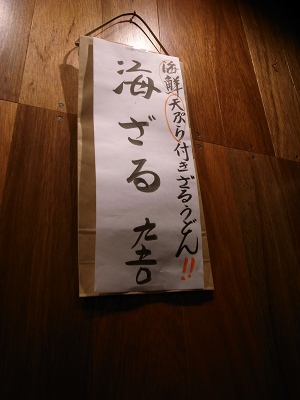 海鮮天ぷら付きざるうどん!!
海ざる